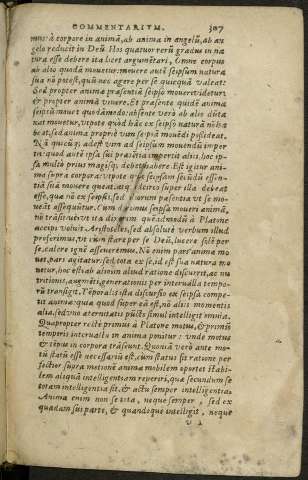 COMMENTARIVM. 307
mus à corpore in animã, ab anima in angelũ, ab an
gelo reducit in Deũ. Hos quatuor rerũ gradus in na
tura esse debere ita licet argumẽtari, Omne corpus
ab alio quodã mouetur: mouere autẽ seipsum natura
sua nõ potest, quũ nec agere per se quicquã valeat:
Sed propter animæ præsentiã seipso moueri videtur:
& propter animã viuere. Et præsente quidẽ anima
seipsũ mouet quodãmodo: absente verò ab alio dũta
xat mouetur, vtpote quod hãc ex seipso naturã nõ ha
beat, sed anima propriè vim seipsã mouẽdi possideat.
Nã cuicũque adest vim ad seipsum mouendũ imper
tit: quod autẽ ipsa sui præsẽtia impertit aliis, hoc ip-
sa multo prius magisque debet habere. Est igitur ani-
ma supra corpora: vtpote quæ seipsam secũdũ essen-
tiã suã mouere queat, atque idcirco super illa debeat
esse, quæ nõ ex seipsis, sed animarum præsentia vt se mo-
ueãt assequuntur. Cum dicimus ipsam moueri animã,
nõ trãsitiuũ vt ita dixerim quẽadmodũ à Platone
accipi voluit Aristoteles, sed absolutè verbum illud
proferimus, vt cum stare per se Deũ, lucere solẽ per
se, calere ignẽ asseueremus. Nõ enim pars animæ mo
uet, pars agitatur: sed tota ex se, id est sua natura mo
uetur, hoc est ab alio in aliud ratione discurrit, ac nu
tritionis, augmẽti, generationis per interualla tempo-
rũ transigit. Tẽporalis ista discursio ex seipsa compe-
tit animæ: quia quod super eã est, nõ aliis momentis
alia, sed vno æternitatis pũcto simul intelligit omnia.
Quapropter rectè primus à Platone motus, & primũ
temporis interuallum in anima ponitur: vnde motus
& tẽpus in corpora trãseunt. Quoniã verò ante mo-
tũ statũ esse necessariũ est, cum status sit ratione per
fectior supra motionẽ animæ mobilem oportet stabi-
lem aliquã intelligentiam reperiri, quæ secundum se
totam intelligentia sit, & actu semper intelligentia.
Anima enim non se tota, neque semper, sed ex
quadam sui parte, & quandoque intelligit, neque